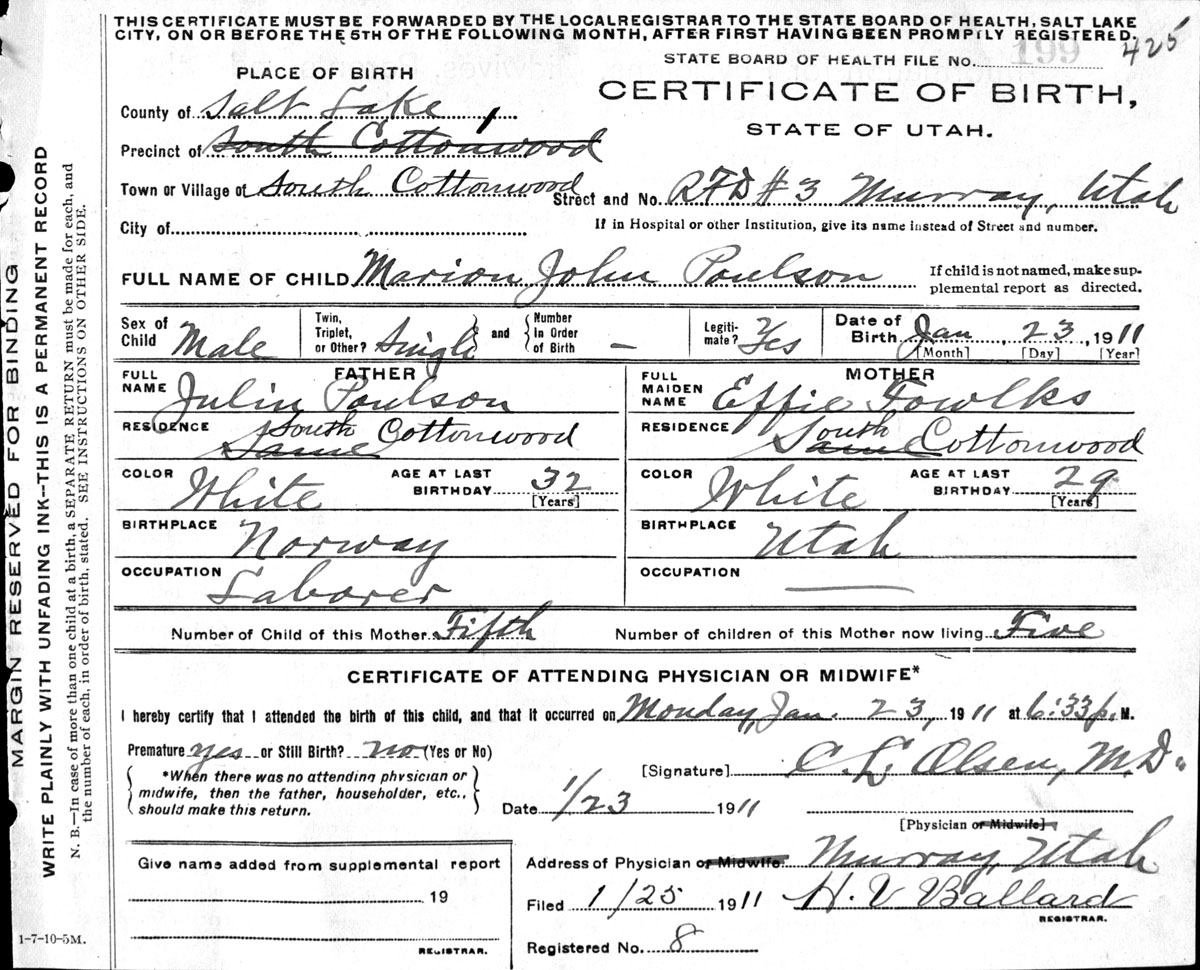 THIS CERTIFICATE MUST BE FORWARDED BY THE LOCAL REGISTRAR TO THE STATE BOARD OF HEALTH, SALT LAKE
CITY, ON OR BEFORE THE 5TH OF THE FOLLOWING MONTH, AFTER FIRST HAVING BEEN PROMPTLY REGISTERED.
425
STATE BOARD OF HEALTH FILE No. 199
PLACE OF BIRTH
CERTIFICATE OF BIRTH,
STATE OF UTAH.
County of Salt Lake
Precinct of South Cottonwood
Town or Village of South Cottonwood Street and No. RFD # 3 Murray, Utah
City of If in Hospital or other Institution, give its name instead of Street and number.
FULL NAME OF CHILD Marion John Poulson If child is not named, make sup-
plemental report as directed.
Sex of Child Male Twin, Triplet, or Other? Single and Number In Order of Birth – Legiti-mate? Yes Date of Birth Jan, 23, 1911
[Month] [Day] [Year]
FATHER MOTHER
FULL NAME Julin Poulson FULL MAIDEN NAME Effie Fowlks
RESIDENCE Same South Cottonwood RESIDENCE Same South Cottonwood
COLOR White AGE AT LAST BIRTHDAY 32 [Years] COLOR White AGE AT LAST BIRTHDAY 29 [Years]
BIRTHPLACE Norway BIRTHPLACE Utah
OCCUPATION Laborer OCCUPATION —
Number of Child of this Mother Fifth Number of children of this Mother now living Five
CERTIFICATE OF ATTENDING PHYSICIAN OR MIDWIFE*
I hereby certify that I attended the birth of this child, and that it occurred on Monday, Jan. 23, 1911 at 6:33 p. M.
Premature yes or Still Birth? no (Yes or No)
*When there was no attending physician or
midwife, then the father, householder, etc.,
should make this return.
[Signature] C. L. Olsen, M.D.
Date 1/23 1911
[Physician or Midwife]
Give name added from supplemental report
19
REGISTRAR.
Address of Physician or Midwife Murray, Utah
Filed 1/25 1911 H. V. Ballard
REGISTRAR.
Registered No. 8
1-7-10-5M.
MARGIN RESERVED FOR BINDING
WRITE PLAINLY WITH UNFADING INK—THIS IS A PERMANENT RECORD
N. B.—In case of more than one child at a birth, a SEPARATE RETURN must be made for each, and
the number of each, in order of birth, stated. SEE INSTRUCTIONS ON OTHER SIDE.